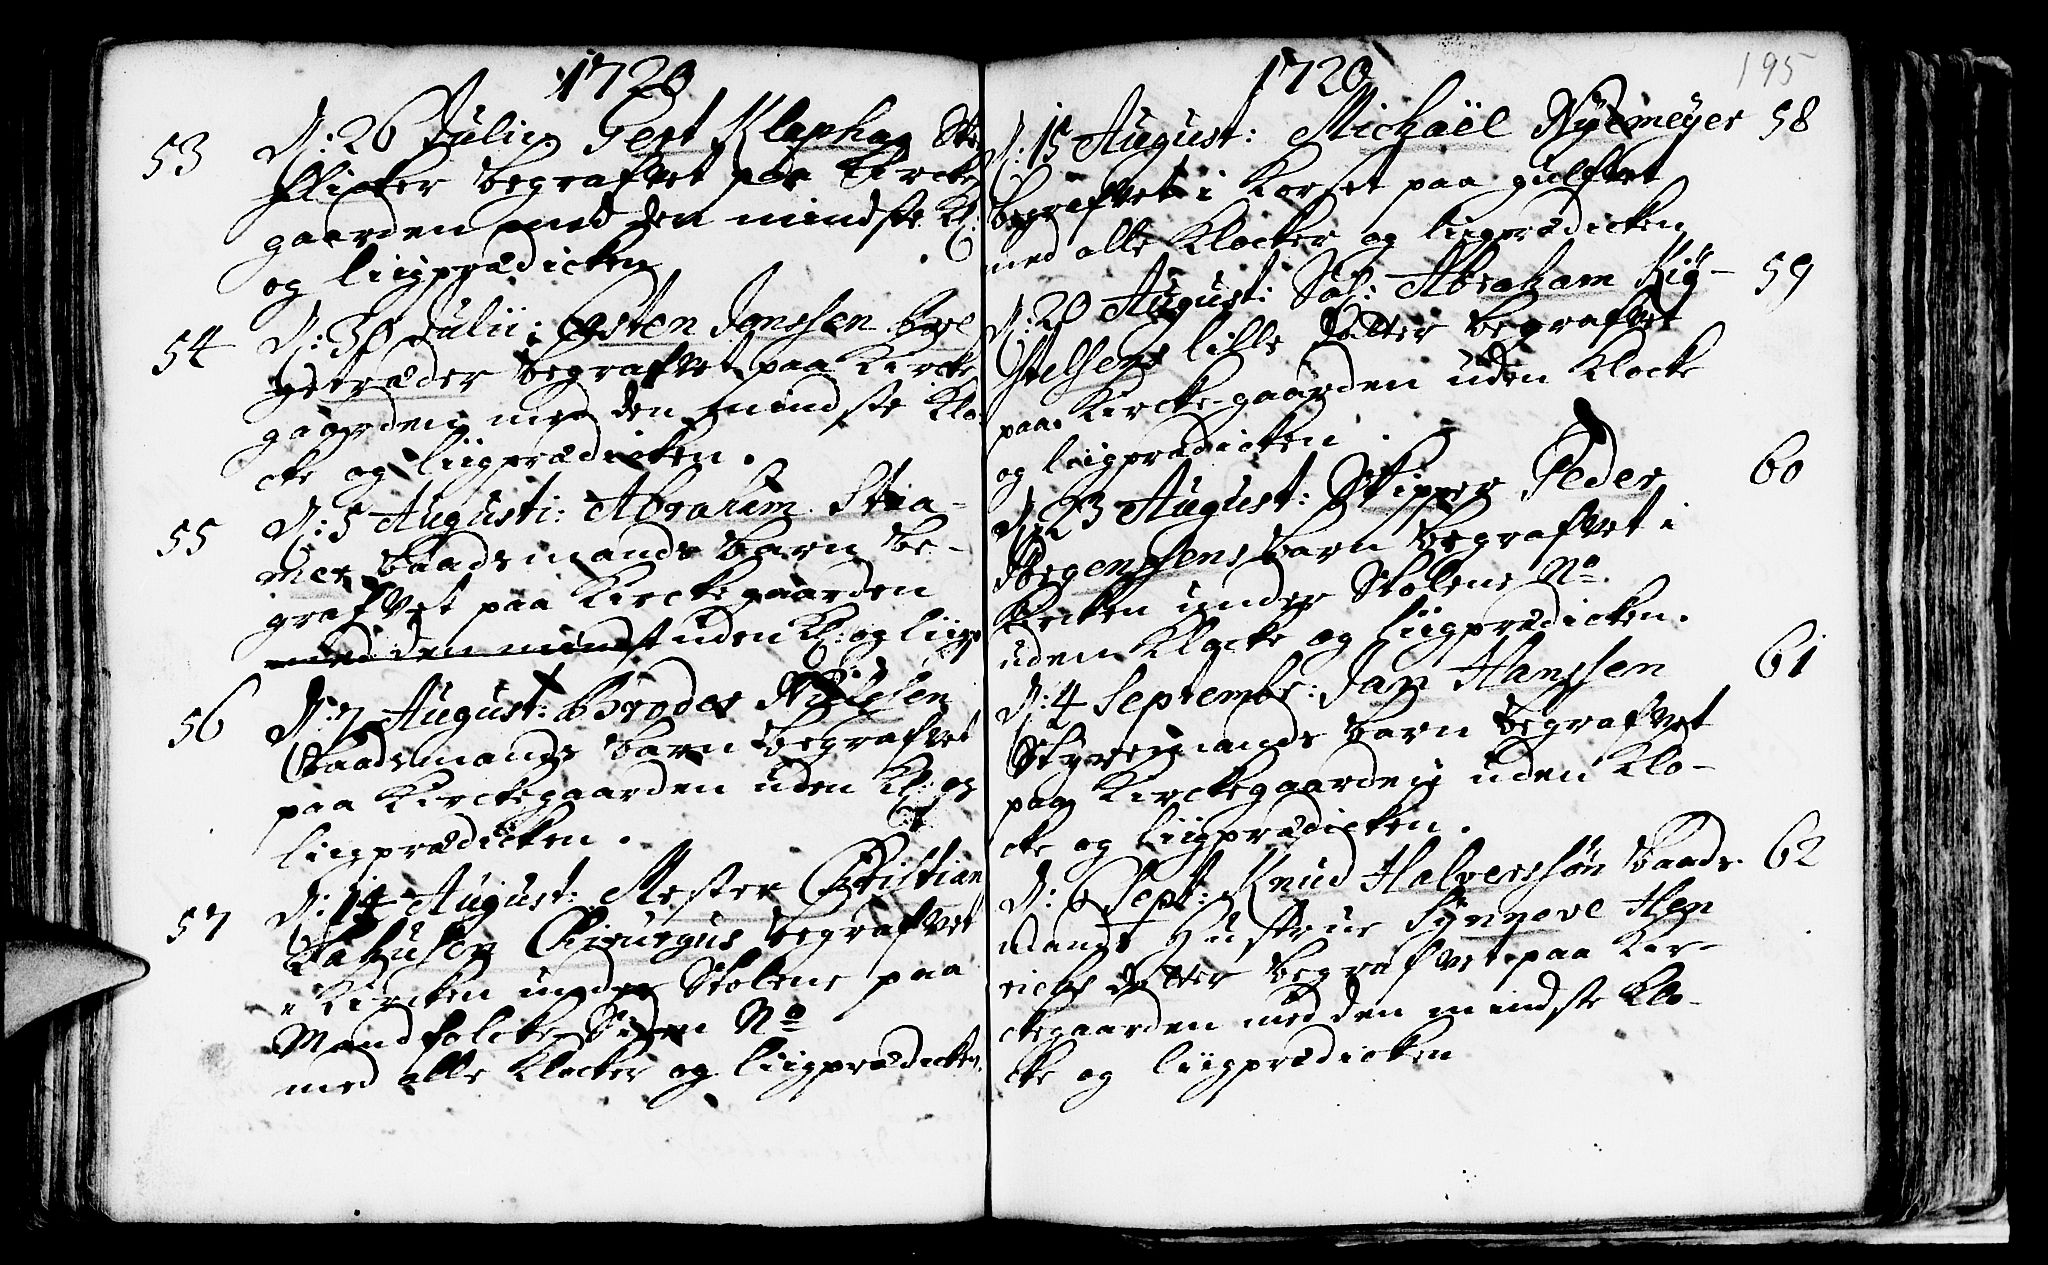 1720
53 D: 26 Julii: Gert Klaphag
flicker begrafvet paa Kircke
gaarden med den mindste Kl:
og liigprædicken
54 D: 30 Julii: Østen Jenssen
træder begrafvet paa Kircke
gaarden med den mindste Klo-
cke og liigprædicken.
55 D: 5 Augusti: Abraham Stia-
mer Baadsmands barn be-
grafvet paa Kirckegaarden
med den minst uden Kl: og liigp
56 D: 7 August: Broder Nilssen
Baadsmands barn begrafvet
paa Kirckegaarden uden Kl: og
liigprædicken.
57 D: 14 August: Mester Christian
Chirurgus begrafvet
i Kircken under Stolene paa
Mandfolcke Siden No
med alle Klocker og liigprædicken.
195
1720
D: 15 August: Michaël Nyemeyer 58
begrafvet i Korset paa gulfvet
med alle Klocker og liigprædicken
D: 20 August: Sal: Abraham Kiy- 59
stelsens lille datter begrafvet
paa Kirckegaarden uden Klocke
og liigprædicken
D: 23 August: Skipper Peder 60
barn begrafvet i
Kircken under Stolene No
uden Klocke og liigprædicken.
D: 4 Septembr: Jan Hanssen 61
Styremands barn begrafvet
paa Kirckegaarden uden Klo-
cke og liigprædicken.
D: 6 Sept: Knud Halverssøn Baads- 62
mands Hustrue Synneve Hen
richs datter begrafvet paa Kir-
ckegaarden med den mindste Klo-
cke og liigprædicken